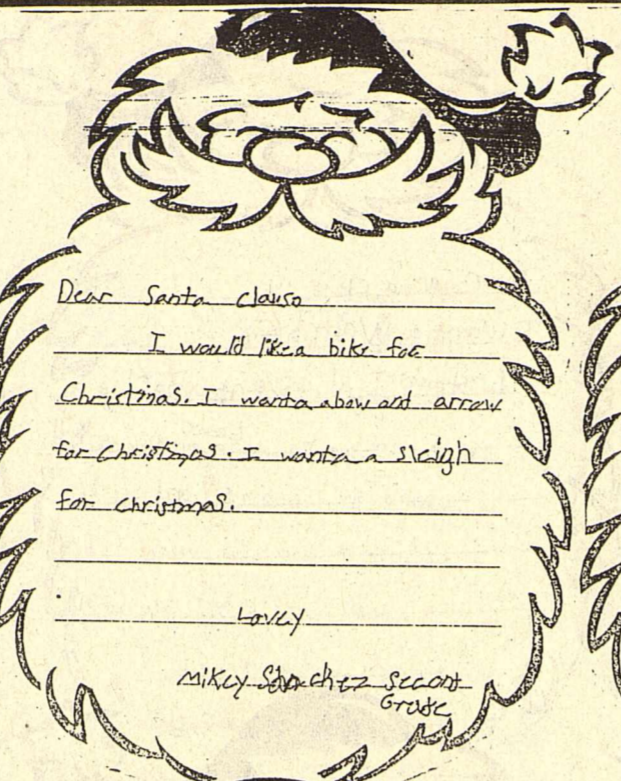 Dear Santa clauso
I would like a bike for
Christmas. I wanta abow and arrow
for christmas. I wanta a sleigh
for christmas.
Lovey
Mikey Sanchez Secont
Grade